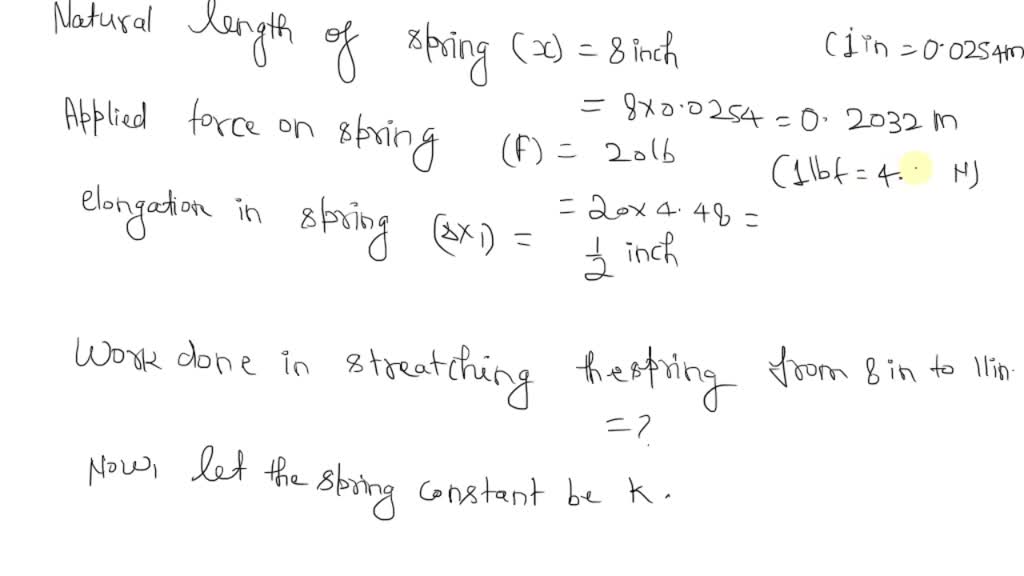 Natural length of spring (x) = 8 inch (1 in = 0.0254m
= 8x0.0254 = 0.2032 m
Applied force on spring (F) = 20 lb (1 lbf = 4. N)
= 20x 4.48 =
elongation in spring (Δx1) = 1/2 inch
Work done in streatching the spring from 8 in to 11in.
= ?
Now, let the spring constant be k.